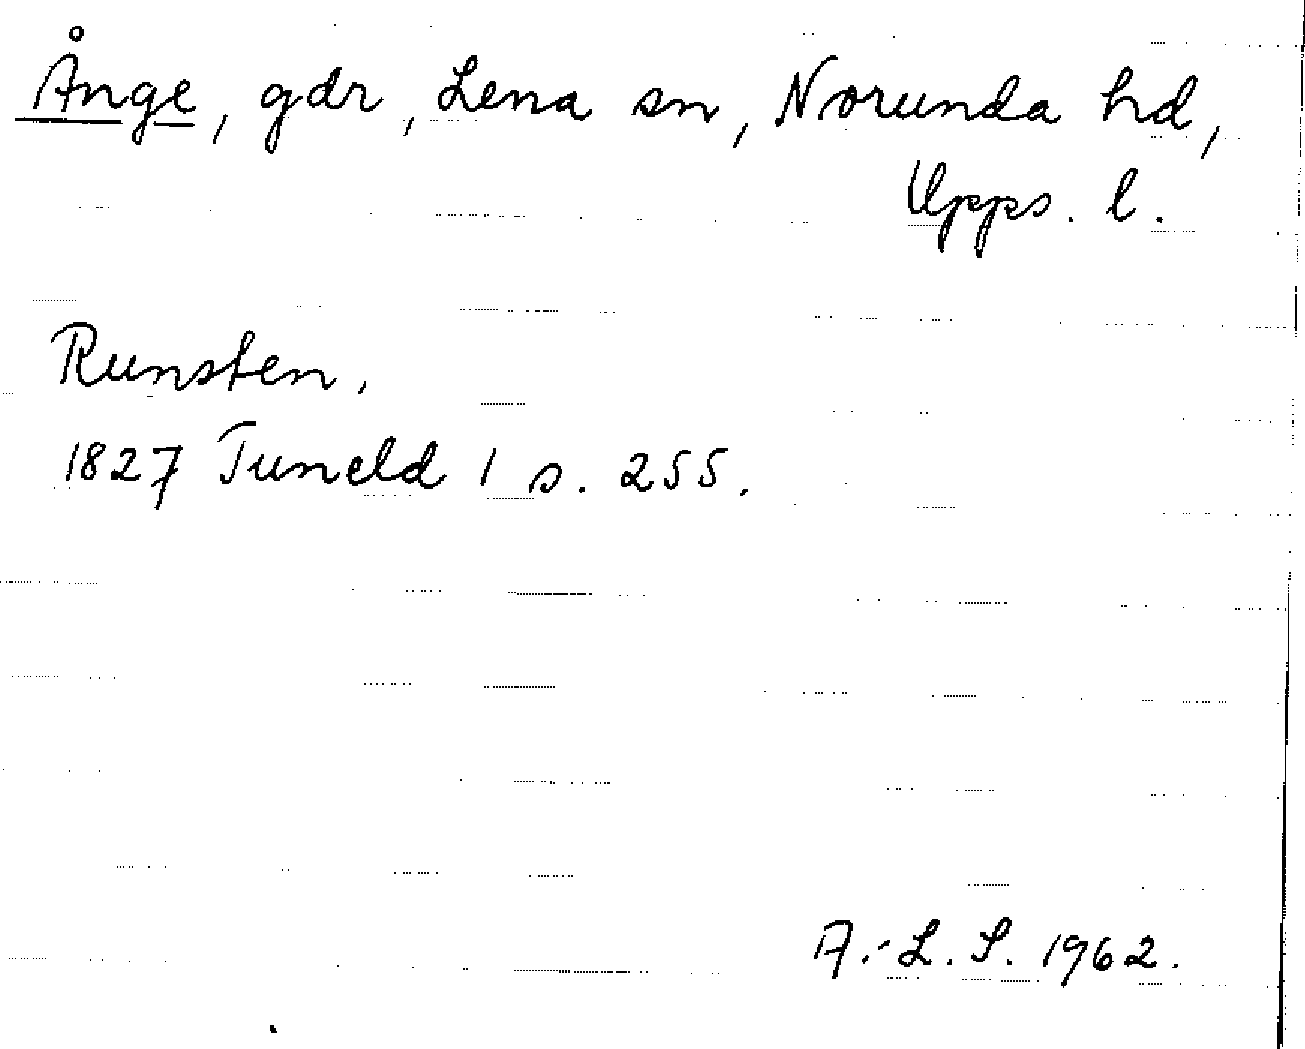 Ånge, gdr, Lena sn, Norunda hd,
Upps. l.
Runsten.
1827 Tuneld 1 s. 255.
A.-L. S. 1962.